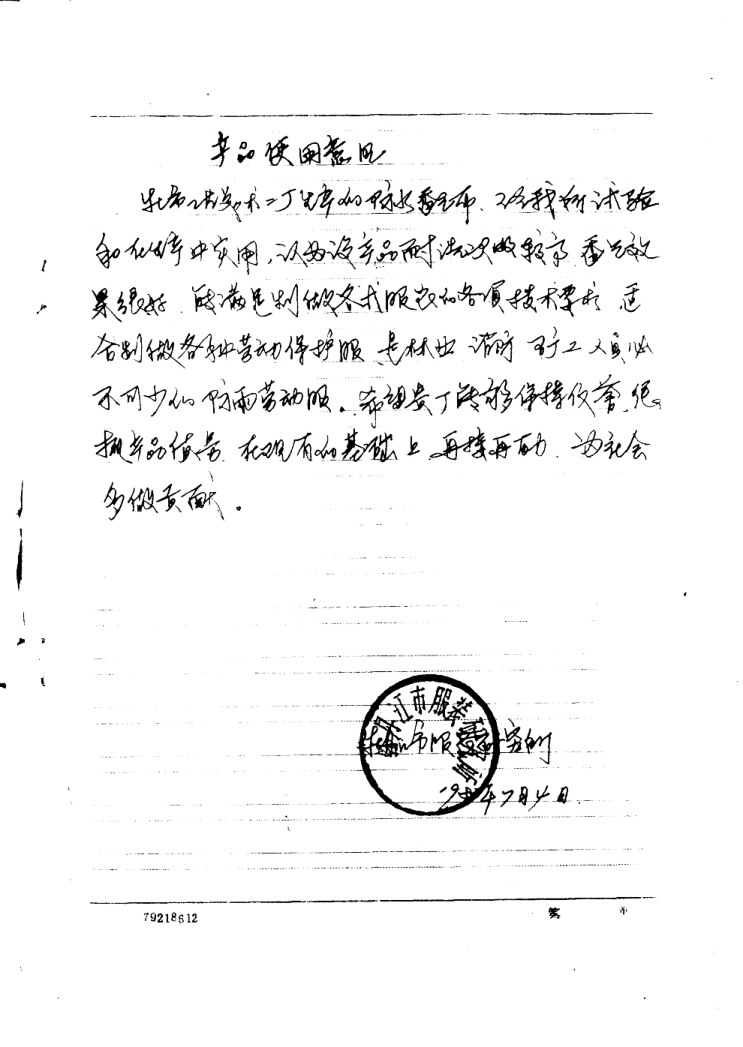 产品使用意见
牡市工艺美术二厂生产的防水香毛布，经我所试验
和在生产中实用，认为该产品耐洗次数较高，香气效
果很好，能满足制做各式服装的各项技术要求，适
合制做各种劳动保护服，是林业、消防、矿工人员必
不可少的防雨劳动服。希望贵厂能够保持优誉，
产品信号，在现有的基础上，再接再励，为社会
多做贡献。
牡丹江市服装研究所
牡市服装研究所
年7月4日
79218612
第 页